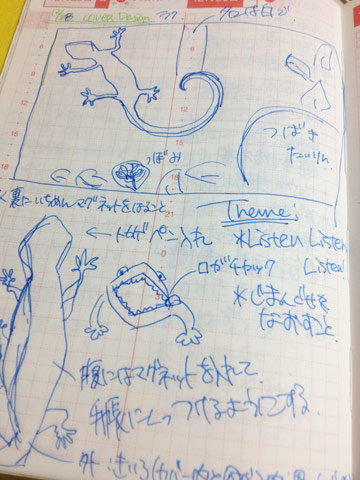 cover Design
クロは目で
つぼみ
つばき
たいりん
裏にいちめんマグネットをはること
Theme:
← トカゲペン入れ
*Listen Listen
Listen!
口がチャック
*じまんぐせを
なおすこと
腹にはマグネットを入れて、
手帳にくっつけるようにする.